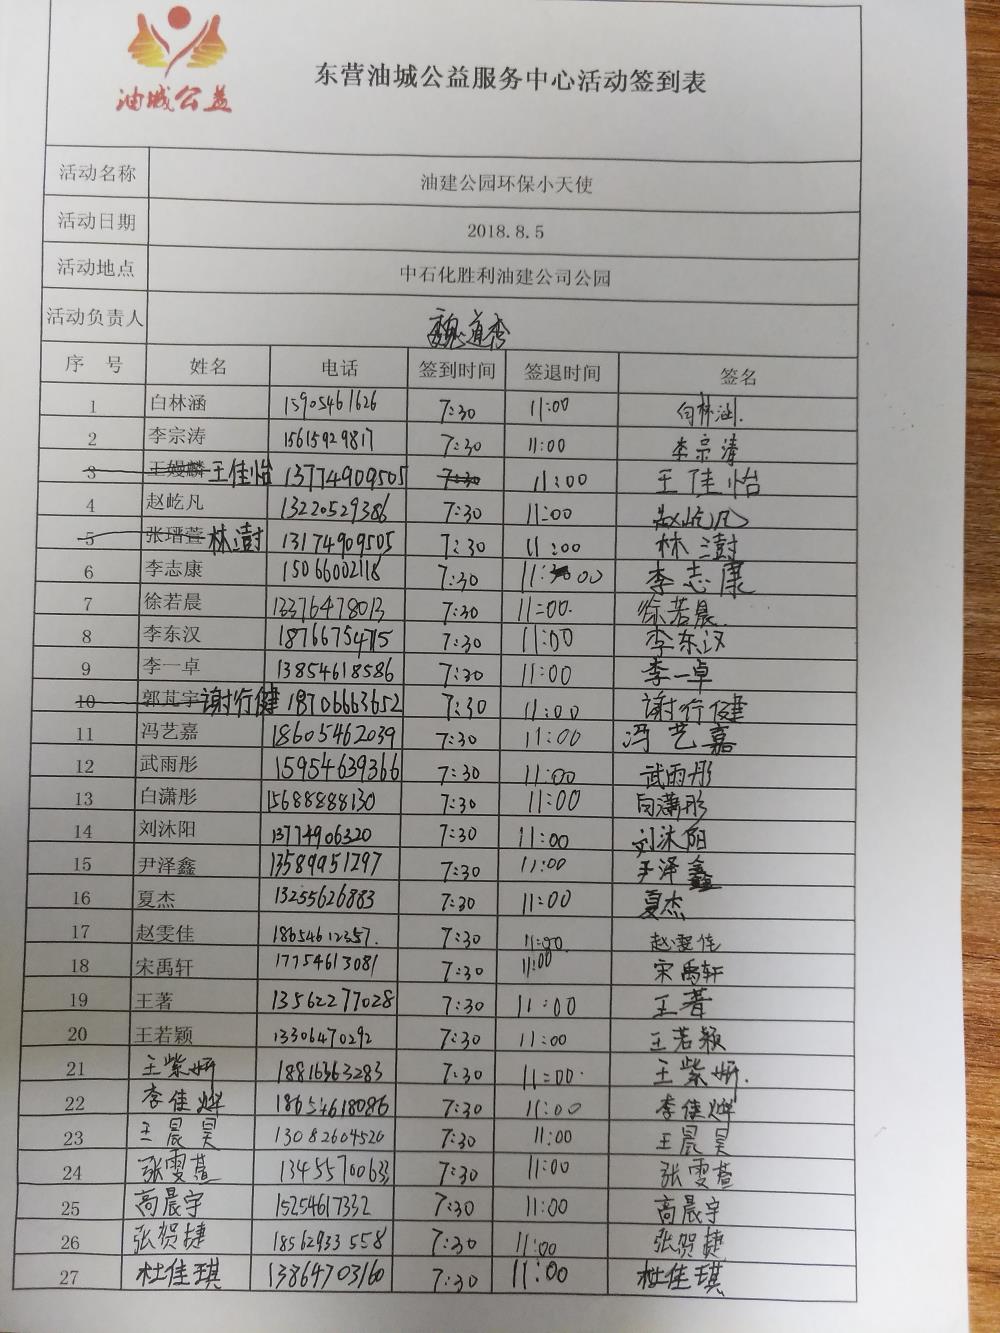 油城公益
东营油城公益服务中心活动签到表
活动名称 油建公园环保小天使
活动日期 2018.8.5
活动地点 中石化胜利油建公司公园
活动负责人 魏道秀
序 号 姓名 电话 签到时间 签退时间 签名
1 白林涵 15905461626 7:30 11:00 白林涵.
2 李宗涛 15615929817 7:30 11:00 李宗清
3 王嫚麟 王佳怡 13774909505 7:30 11:00 王佳怡
4 赵屹凡 13220529386 7:30 11:00 赵屹凡
5 张瑨萱 林澍 13174909505 7:30 11:00 林澍
6 李志康 15066002118 7:30 11:00 李志康
7 徐若晨 13376478013 7:30 11:00. 徐若晨.
8 李东汉 18766754715 7:30 11:00 李东汉
9 李一卓 13854618586 7:30 11:00 李一卓
10 郭芃宇 谢行健 18706663652 7:30 11:00 谢行健
11 冯艺嘉 18605462039 7:30 11:00 冯艺嘉
12 武雨彤 15954639366 7:30 11:00 武雨彤
13 白潇彤 15688888130 7:30 11:00 白潇彤
14 刘沐阳 13774906320 7:30 11:00 刘沐阳
15 尹泽鑫 13589951297 7:30 11:00 尹泽鑫
16 夏杰 13255626883 7:30 11:00 夏杰
17 赵雯佳 18654612357. 7:30 11:00 赵雯佳
18 宋禹轩 17754613081 7:30 11:00 宋禹轩
19 王著 13562277028 7:30 11:00 王著
20 王若颖 13306470292 7:30 11:00 王若颖
21 王紫妍 18816363283 7:30 11:00. 王紫妍.
22 李佳烨 18654618086 7:30 11:00 李佳烨
23 王晨昊 13082604520 7:30 11:00 王晨昊
24 张雯萱 13455700633 7:30 11:00 张雯萱
25 高晨宇 15254617332 7:30 11:00 高晨宇
26 张贺捷 18562933558 7:30 11:00 张贺捷
27 杜佳琪 13864703160 7:30 11:00 杜佳琪